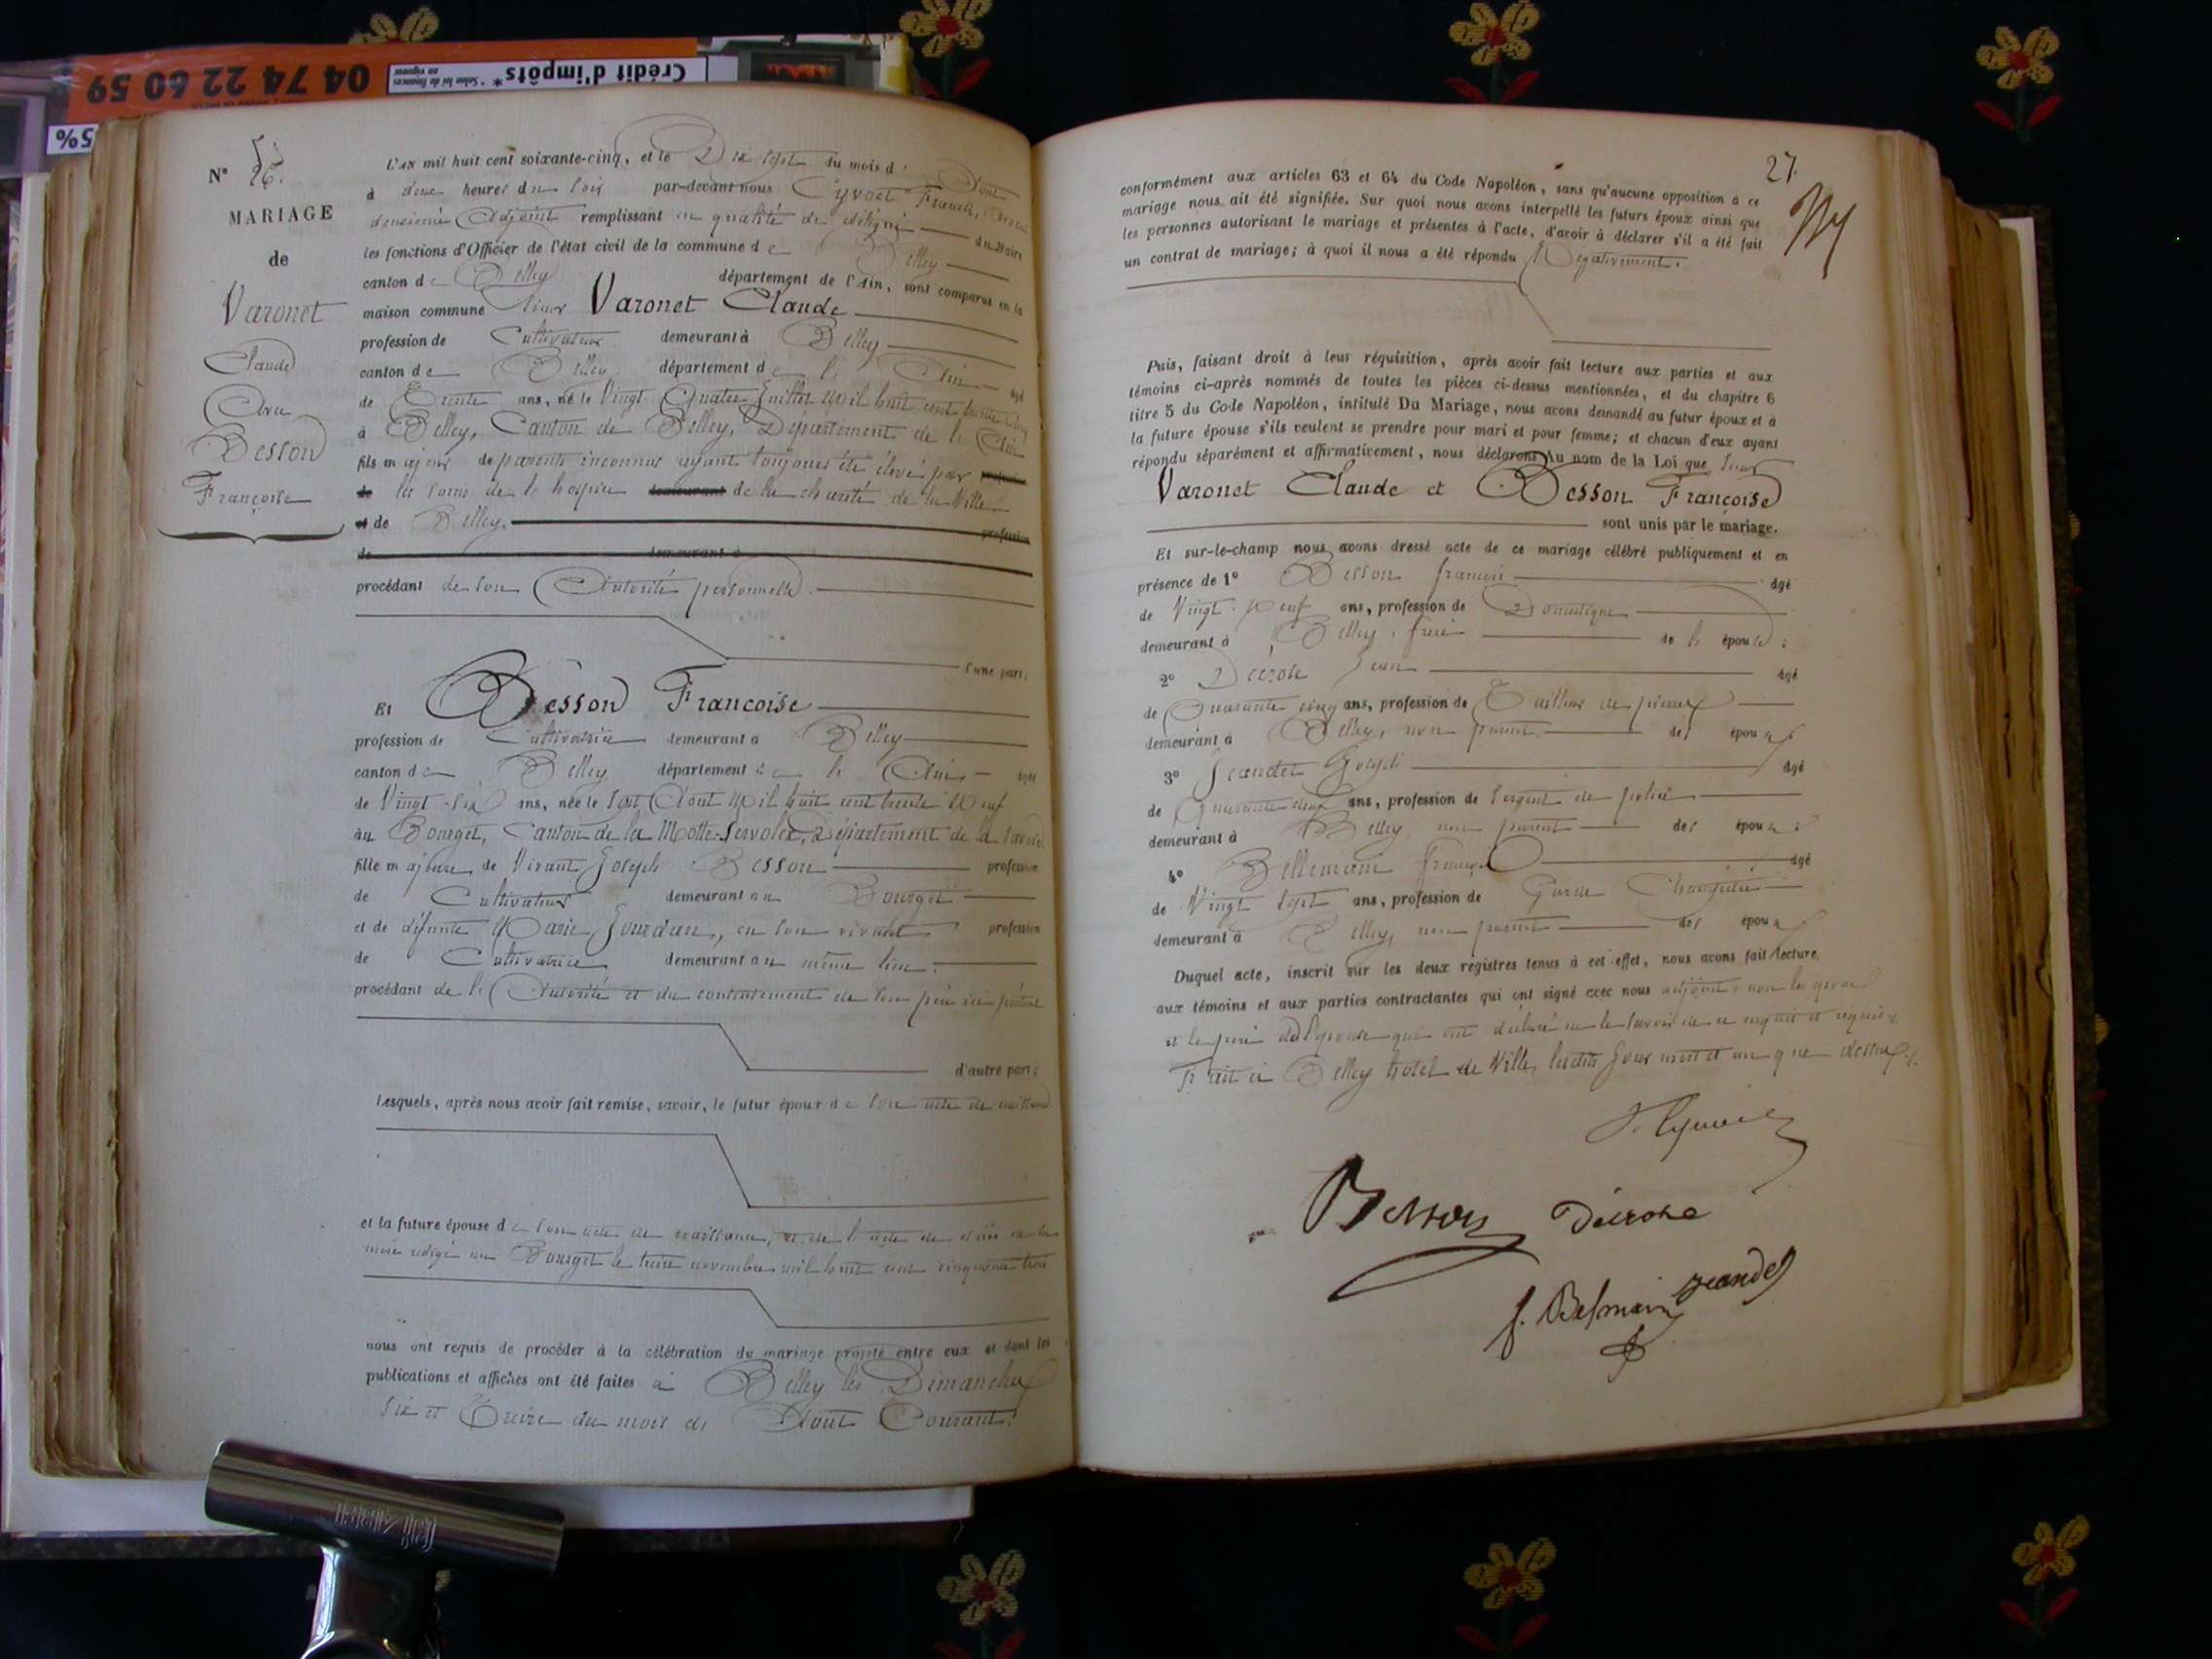 04 74 22 60 59
Crédit d'impôts*
* Selon loi de finances en vigueur
5%
N° 26.
MARIAGE
de
Varonet
Claude
Avec
Besson
Françoise
L'an mil huit cent soixante-cinq, et le Dix sept du mois d' Aout
à deux heures du soir par-devant nous Cyvoct Franck,
deuxième Adjoint remplissant en qualité de délégué du Maire
les fonctions d'Officier de l'état civil de la commune de Belley
canton de Belley département de l'Ain, sont comparus en la
maison commune sieur Varonet Claude
profession de Cultivateur demeurant à Belley
canton de Belley département de l' Ain âgé
de Trente ans, né le Vingt Quatre Juillet Mil huit cent trente Cinq
à Belley, Canton de Belley, Département de l' Ain
fils majeur de parents inconnus ayant toujours été élevé par profession
de les soins de l' hospice demeurant de la charité de la Ville
et de Belley. profession
de demeurant à
procédant de son Autorité personnelle.
d'une part;
Et Besson Françoise
profession de Cultivatrice demeurant à Belley
canton de Belley département de l' Ain âgée
de Vingt-six ans, née le sept Aout Mil huit cent trente Neuf
au Bourget, Canton de la Motte-Servolex, Département de la Savoie
fille majeure de Vivant Joseph Besson profession
de Cultivateur demeurant au Bourget
et de défunte Marie Jourdan, en son vivant profession
de Cultivatrice demeurant au même lieu.
procédant de l' Autorité et du consentement de son père ici présent
d'autre part;
Lesquels, après nous avoir fait remise, savoir, le futur époux de son acte de naissance
et la future épouse de son acte de naissance, et de l' acte de décès de sa
mère rédigé au Bourget le treize novembre mil huit cent cinquante trois
nous ont requis de procéder à la célébration du mariage projeté entre eux et dont les
publications et affiches ont été faites à Belley les Dimanches
six et Treize du mois d' Aout Courant.
27.
conformément aux articles 63 et 64 du Code Napoléon, sans qu'aucune opposition a ce
mariage nous ait été signifiée. Sur quoi nous avons interpellé les futurs époux ainsi que
les personnes autorisant le mariage et présentes à l'acte, d'avoir à déclarer s'il a été fait
un contrat de mariage; à quoi il nous a été répondu Négativement.
Puis, faisant droit à leur réquisition, après avoir fait lecture aux parties et aux
témoins ci-après nommés de toutes les pièces ci-dessus mentionnées, et du chapitre 6
titre 5 du Code Napoléon, intitulé Du Mariage, nous avons demandé au futur époux et à
la future épouse s'ils veulent se prendre pour mari et pour femme; et chacun d'eux ayant
répondu séparément et affirmativement, nous déclarons Au nom de la Loi que sieur
Varonet Claude et Besson Françoise
sont unis par le mariage.
Et sur-le-champ nous avons dressé acte de ce mariage célébré publiquement et en
présence de 1° Besson françois âgé
de Vingt-Neuf ans, profession de Domestique
demeurant à Belley, frère de l' épouse;
2° Décrose Jean âgé
de Quarante cinq ans, profession de Tailleur de pierres
demeurant à Belley, non parent des époux;
3° Jeandet Joseph âgé
de Quarante deux ans, profession de Sergent de police
demeurant à Belley non parent des époux;
4° Bellemain françois âgé
de Vingt sept ans, profession de Garde Champêtre
demeurant à Belley, non parent des époux
Duquel acte, inscrit sur les deux registres tenus à cet effet, nous avons fait lecture
aux témoins et aux parties contractantes qui ont signé avec nous adjoint, non les époux
et le père de l'épouse qui ont déclaré ne le savoir de ce enquis et requis.
Fait à Belley hotel de Ville, lesdits jour mois et an que dessus.
Besson Décrose
f. Belmain Jeandet